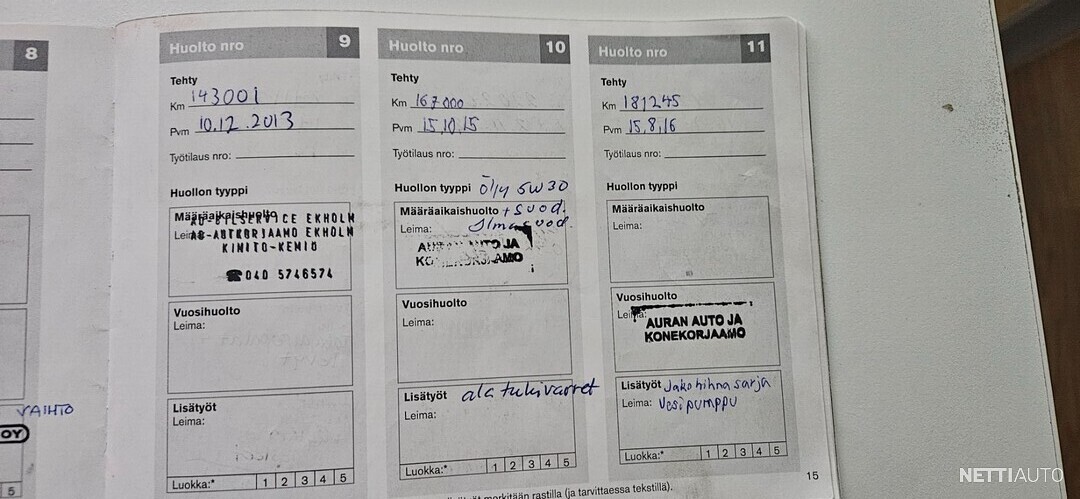 8
VAIHTO
OY
5
Huolto nro 9
Tehty
Km 143001
Pvm 10.12.2013
Työtilaus nro:
Huollon tyyppi
Määräaikaishuolto
Leima:
EKHOLM
AB-AUTOKORJAAMO EKHOLM
KIMITO-KEMIÖ
☎040 5746574
Vuosihuolto
Leima:
Lisätyöt
Leima:
Luokka:* 1 2 3 4 5
Huolto nro 10
Tehty
Km 167000
Pvm 15.10.15
Työtilaus nro:
Huollon tyyppi Öljy 5W30
Määräaikaishuolto + suod.
Leima: Ilmasuod.
AURAN AUTO JA
KONEKORJAAMO
Vuosihuolto
Leima:
Lisätyöt ala tukivarret
Leima:
Luokka:* 1 2 3 4 5
Huolto nro 11
Tehty
Km 181245
Pvm 15.8.16
Työtilaus nro:
Huollon tyyppi
Määräaikaishuolto
Leima:
Vuosihuolto
Leima:
AURAN AUTO JA
KONEKORJAAMO
Lisätyöt Jakohihnasarja
Leima: Vesipumppu
Luokka:* 1 2 3 4 5
merkitään rastilla (ja tarvittaessa tekstillä).
15
NETTIAUTO